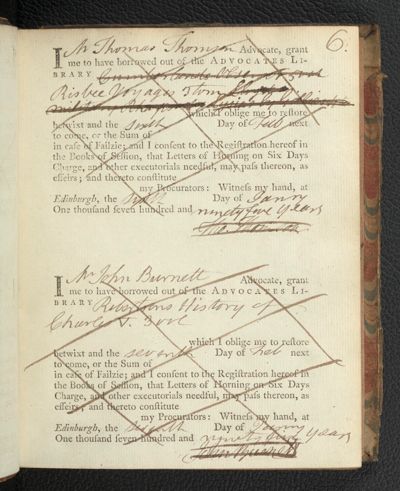 6.
I Mr Thomas Thomson Advocate, grant
me to have borrowed out of the ADVOCATES LI-
BRARY
Risbec Voyages 3 tom
which I oblige me to restore
betwixt and the sixth Day of Feb next
to come, or the Sum of
in case of Failzie; and I consent to the Registration hereof in
the Books of Session, that Letters of Horning on Six Days
Charge, and other executorials needful, may pass thereon, as
effeirs; and thereto constitute
my Procurators: Witness my hand, at
Edinburgh, the sixth Day of Janry
One thousand seven hundred and ninety five years
I Mr John Burnett Advocate, grant
me to have borrowed out of the ADVOCATES LI-
BRARY Robertsons History of
Charles 5. 3 vol
which I oblige me to restore
betwixt and the seventh Day of Feb next
to come, or the Sum of
in case of Failzie; and I consent to the Registration hereof in
the Books of Session, that Letters of Horning on Six Days
Charge, and other executorials needful, may pass thereon, as
effeirs; and thereto constitute
my Procurators: Witness my hand, at
Edinburgh, the Day of Janry
One thousand seven hundred and ninety five years
John Burnett